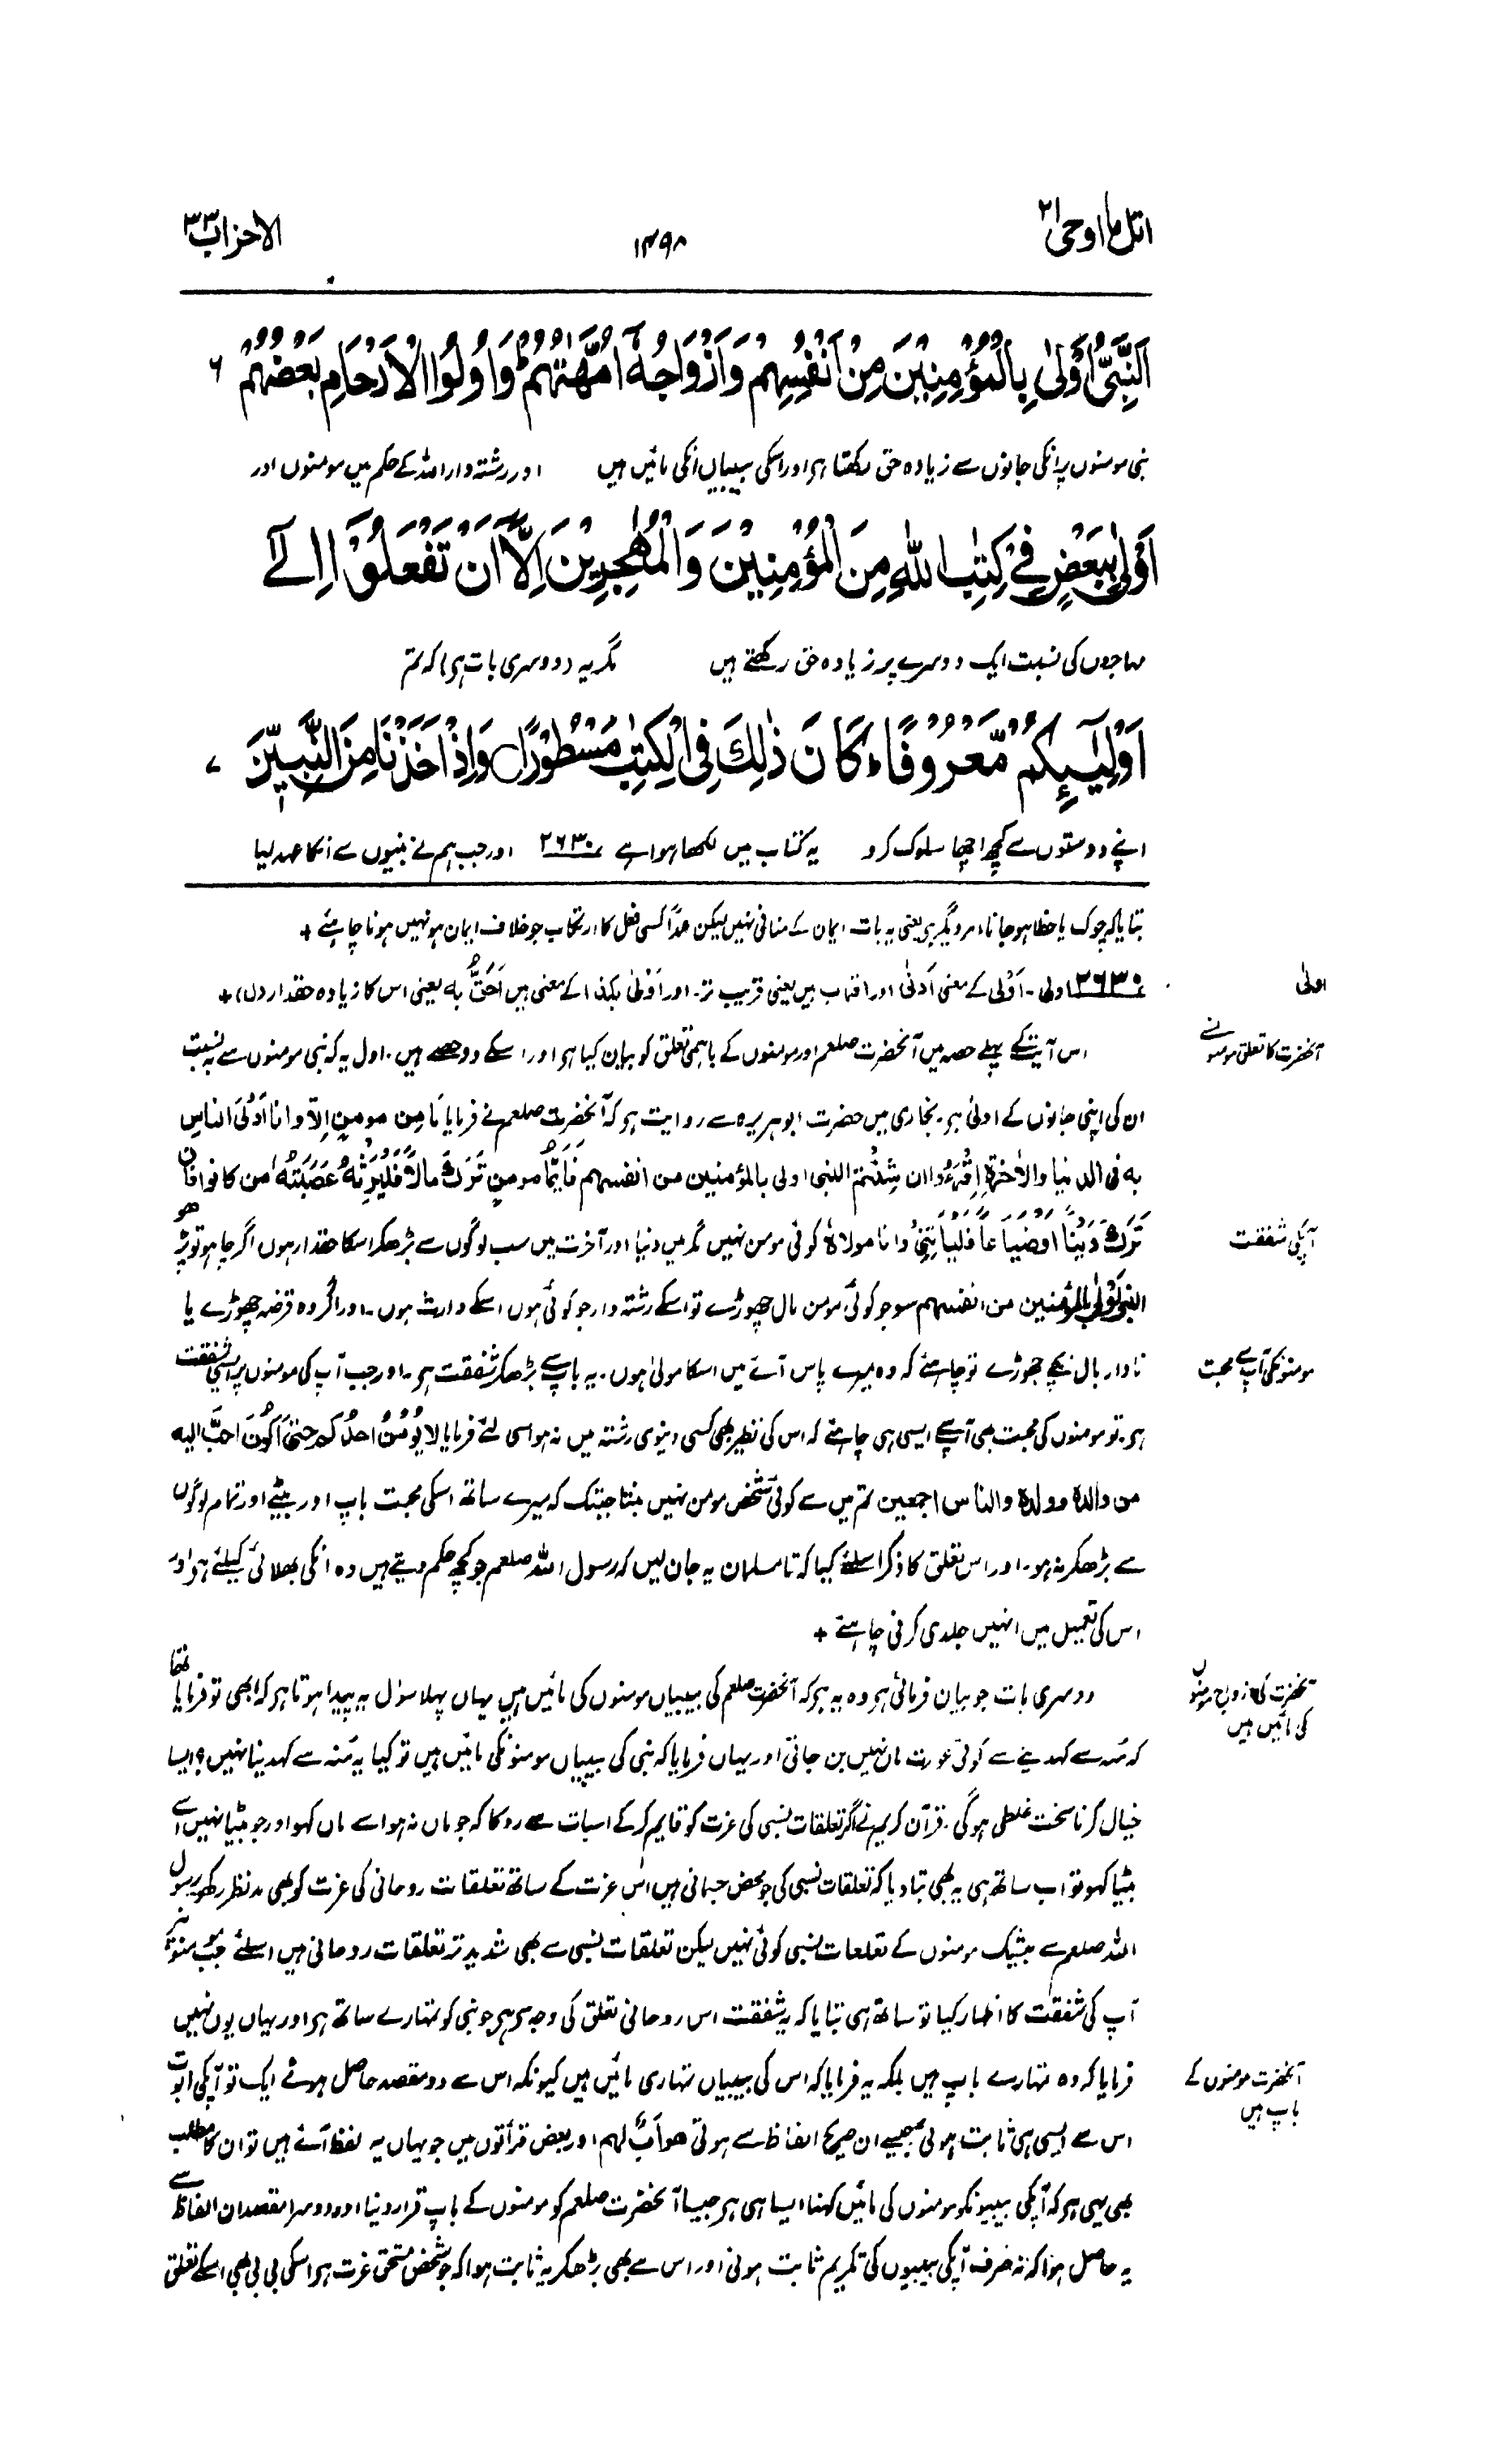 اتل ما اوحی ۲۱
۱۴۹۸
الاحزاب ۳۳
اَلنَّبِیُّ اَوْلٰی بِالْمُؤْمِنِیْنَ مِنْ اَنْفُسِهِمْ وَاَزْوَاجُهٗۤ اُمَّهٰتُهُمْ ؕ وَاُولُوا الْاَرْحَامِ بَعْضُهُمْ ۶
نبی مومنوں پر انکی جانوں سے زیادہ حق رکھتا ہر اور اسکی بیبیاں انکی مائیں ہیں اور رشتہ دار اللہ کے حکم میں مومنوں اور
اَوْلٰی بِبَعْضٍ فِیْ کِتٰبِ اللّٰهِ مِنَ الْمُؤْمِنِیْنَ وَالْمُهٰجِرِیْنَ اِلَّاۤ اَنْ تَفْعَلُوْۤا اِلٰۤی
مہاجروں کی نسبت ایک دوسرے پر زیادہ حق رکھتے ہیں مگر یہ (دوسری بات ہی) کہ تم
اَوْلِیٰٓئِکُمْ مَّعْرُوْفًا ؕ کَانَ ذٰلِکَ فِی الْکِتٰبِ مَسْطُوْرًا وَاِذْ اَخَذْنَا مِنَ النَّبِیّٖنَ ۷
اپنے دوستوں سے کچھ اچھا سلوک کرو یہ کتاب میں لکھا ہوا ہے ۲۶۳۰ اور جب ہم نے نبیوں سے انکا عہد لیا
بتایا کہ چوک یا خطا ہو جانا امر دیگر ہی یعنی یہ بات ایمان کے منافی نہیں لیکن عمداً کسی فعل کا ارتکاب جو خلاف ایمان ہو نہیں ہونا چاہئے +
اولیٰ
۲۶۳۰ اولی ۔ اَوْلٰی کے معنی اَدنٰی اور اقرب ہیں یعنی قریب تر ۔ اور اَوْلٰی بکذا کے معنی ہیں اَحَقُّ به یعنی اس کا زیادہ حقدار (ل) +
آنحضرت کا تعلق مومنو نسے
اس آیت کے پہلے حصہ میں آنحضرت صلعم اور مومنوں کے باہمی تعلق کو بیان کیا ہر اور اسکے دو حصے ہیں ۔ اول یہ کہ نبی مومنوں سے بہ نسبت
ان کی اپنی جانوں کے اولیٰ ہر ۔ بخاری میں حضرت ابوہریرہ سے روایت ہر کہ آنحضرت صلعم نے فرمایا مَا مِن مومنٍ اِلّا وانا اَوْلیَ الناسِ
به فی الدنیا والاٰخرةِ اِقْرَءُوا ان شِئْتم النبی اولی بالمؤمنین من انفسهم فَاَیُّمَا مومنٍ تَرَکَ مالاً فَلْیَرِثْهُ عَصَبَتُهُ من کانوا فان
آپکی شفقت
تَرَکَ دَیْنًا اوضَیاعاً فَلْیَاْتِنِیْ وانا مولاهُ کوئی مومن نہیں مگر میں دنیا اور آخرت میں سب لوگوں سے بڑھکر اسکا حقدار ہوں اگر چاہو تو پڑھو
النبی اولیٰ بالمؤمنین من انفسهم سو جو کوئی مومن مال چھوڑے تو اسکے رشتہ دار جو کوئی ہوں اسکے وارث ہوں ۔ اور اگر وہ قرضہ چھوڑے یا
مومنونکی آپ سے محبت
نادار بال بچے چھوڑے تو چاہئے کہ وہ میرے پاس آئے میں اسکا مولیٰ ہوں ۔ یہ باپ سے بڑھکر شفقت ہر ۔ اور جب آپ کی مومنوں پر ایسی شفقت
ہر ۔ تو مومنوں کی محبت بھی آپ سے ایسی ہی چاہئے کہ اس کی نظیر بھی کسی دنیوی رشتہ میں نہ ہو اسی لئے فرمایا لا یُؤمِنُ احدُ کم حتیٰ اَکُونَ احبَّ الیه
من والده وولده والناس اجمعین تم میں سے کوئی شخص مومن نہیں بنتا جبتک کہ میرے ساتھ اسکی محبت باپ اور بیٹے اور تمام لوگوں
سے بڑھکر نہ ہو ۔ اور اس تعلق کا ذکر اسلئے کیا کہ تا مسلمان یہ جان لیں کہ رسول اللہ صلعم جو کچھ حکم دیتے ہیں وہ انکی بھلائی کیلئے ہر اور
اس کی تعمیل میں انہیں جلدی کرنی چاہئے +
آنحضرت کی ازواج مومنوں
کی مائیں ہیں
دوسری بات جو بیان فرمائی ہر وہ یہ ہر کہ آنحضرت صلعم کی بیبیاں مومنوں کی مائیں ہیں یہاں پہلا سوال یہ پیدا ہوتا ہر کہ ابھی تو فرمایا تھا
کہ منہ سے کہدینے سے کوئی عورت ماں نہیں بن جاتی اور یہاں فرمایا کہ نبی کی بیبیاں مومنونکی مائیں ہیں تو کیا یہ منہ سے کہدینا نہیں ؟ ایسا
خیال کرنا سخت غلطی ہوگی ۔ قرآن کریم نے اگر تعلقات نسبی کی عزت کو قایم کرکے اسبات سے روکا کہ جو ماں نہ ہو اسے ماں کہو اور جو بیٹا نہیں اسے
بیٹا کہو تو اب ساتھ ہی یہ بھی بتا دیا کہ تعلقات نسبی کی جو محض جسمانی ہیں اس عزت کے ساتھ تعلقات روحانی کی عزت کو بھی مدنظر رکھو رسول
اللہ صلعم سے بیشک مومنوں کے تعلقات نسبی کوئی نہیں لیکن تعلقات نسبی سے بھی شدید تر تعلقات روحانی ہیں اسلئے جب مومنوں پر
آپ کی شفقت کا اظہار کیا تو ساتھ ہی بتایا کہ یہ شفقت اس روحانی تعلق کی وجہ سے ہر جو نبی کو تمہارے ساتھ ہر اور یہاں یوں نہیں
آنحضرت مومنوں کے
باپ ہیں
فرمایا کہ وہ تمہارے باپ ہیں بلکہ یہ فرمایا کہ اس کی بیبیاں تمہاری مائیں ہیں کیونکہ اس سے دو مقصد حاصل ہوئے ایک تو آپکی ابوت
اس سے ایسی ہی ثابت ہوئی جیسے ان صریح الفاظ سے ہوتی هو اَبٌ لهم اور بعض قرأتوں میں جو یہاں یہ لفظ آئے ہیں تو ان کا مطلب
بھی یہی ہر کہ آپکی بیبیونکو مومنوں کی مائیں کہنا ایسا ہی ہر جیسا آنحضرت صلعم کو مومنوں کے باپ قرار دینا اور دوسرا مقصد ان الفاظ سے
یہ حاصل ہوا کہ نہ صرف آپکی بیبیوں کی تکریم ثابت ہوئی اور اس سے بھی بڑھکر یہ ثابت ہوا کہ جو شخص مستحق عزت ہر اسکی بی بی بھی اسکے تعلق